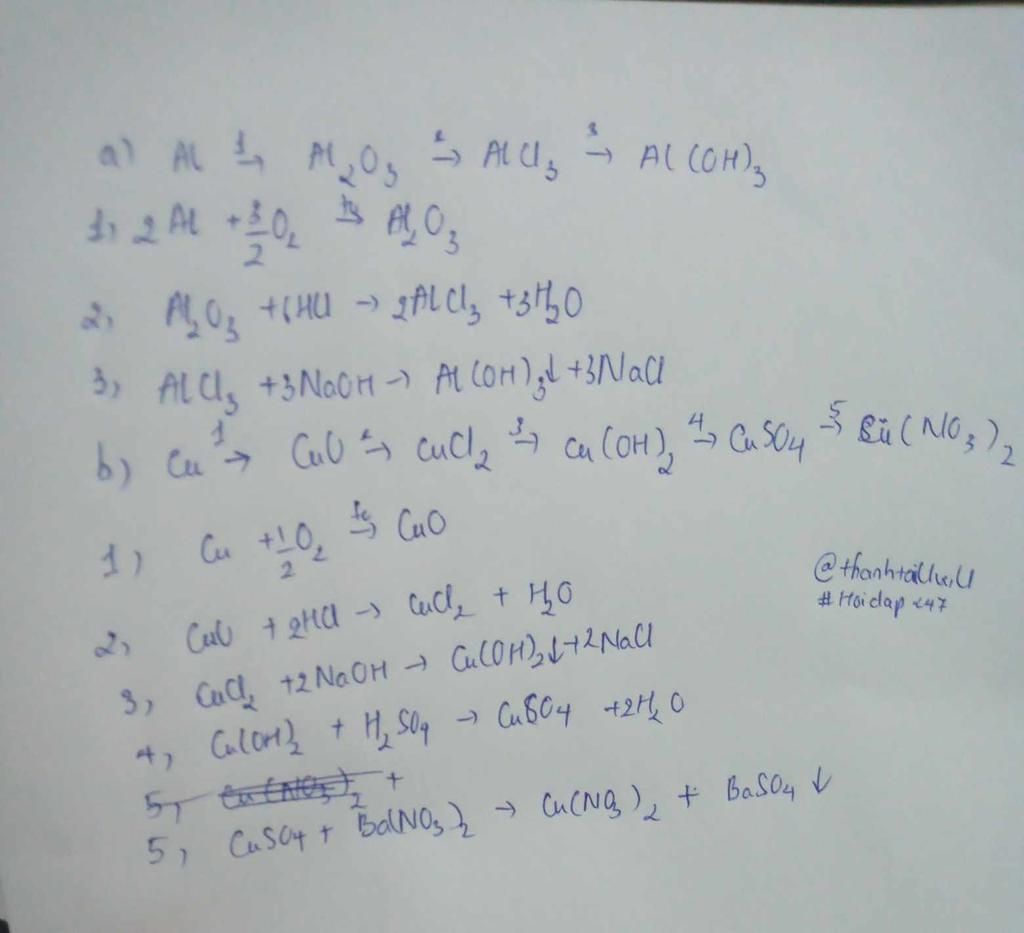 a) Al →¹ Al₂O₃ →² AlCl₃ →³ Al(OH)₃
1, 2Al + 3/2 O₂ →^t° Al₂O₃
2, Al₂O₃ + 6HCl → 2AlCl₃ + 3H₂O
3, AlCl₃ + 3NaOH → Al(OH)₃↓ + 3NaCl
b) Cu →¹ CuO →² CuCl₂ →³ Cu(OH)₂ →⁴ CuSO₄ →⁵ Cu(NO₃)₂
1, Cu + 1/2 O₂ →^t° CuO
2, CuO + 2HCl → CuCl₂ + H₂O
3, CuCl₂ + 2NaOH → Cu(OH)₂↓ + 2NaCl
4, Cu(OH)₂ + H₂SO₄ → CuSO₄ + 2H₂O
5, Cu(NO₃)₂ +
5, CuSO₄ + Ba(NO₃)₂ → Cu(NO₃)₂ + BaSO₄↓
#Hoidap247